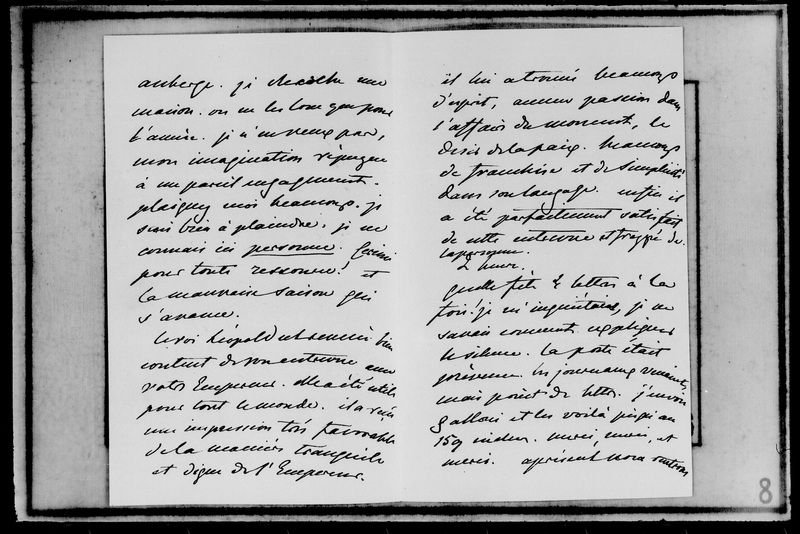 auberge. je cherche une
maison. on ne les loue que pour
l'année. je n'en veux pas,
mon imagination répugne
à un pareil engagement.
plaignez moi beaucoup. je
suis bien à plaindre, je ne
connais ici personne.
pour toute ressource! et
la mauvaise saison qui
s'avance.
Le roi Léopold est revenu bien
content de son entrevue avec
votre Empereur. elle a été utile
pour tout le monde. il a
une impression très favorable
de la manière tranquille
et digne de l'Empereur.
il lui a trouvé beaucoup
d'esprit, aucune passion dans
l'affaire du moment, le
désir de la paix. beaucoup
de franchise et de simplicité
dans son langage. enfin il
a été parfaitement satisfait
de cette entrevue et frappé de
la personne.
2 heures.
quelle fête 2 lettres à la
fois! je m'inquiétais, je ne
savais comment expliquer
le silence. la poste était
les journaux venaient,
mais point de lettre. j'
et les voilà jusqu'au
159 inclus. merci, merci, et
merci. à présent nous
8